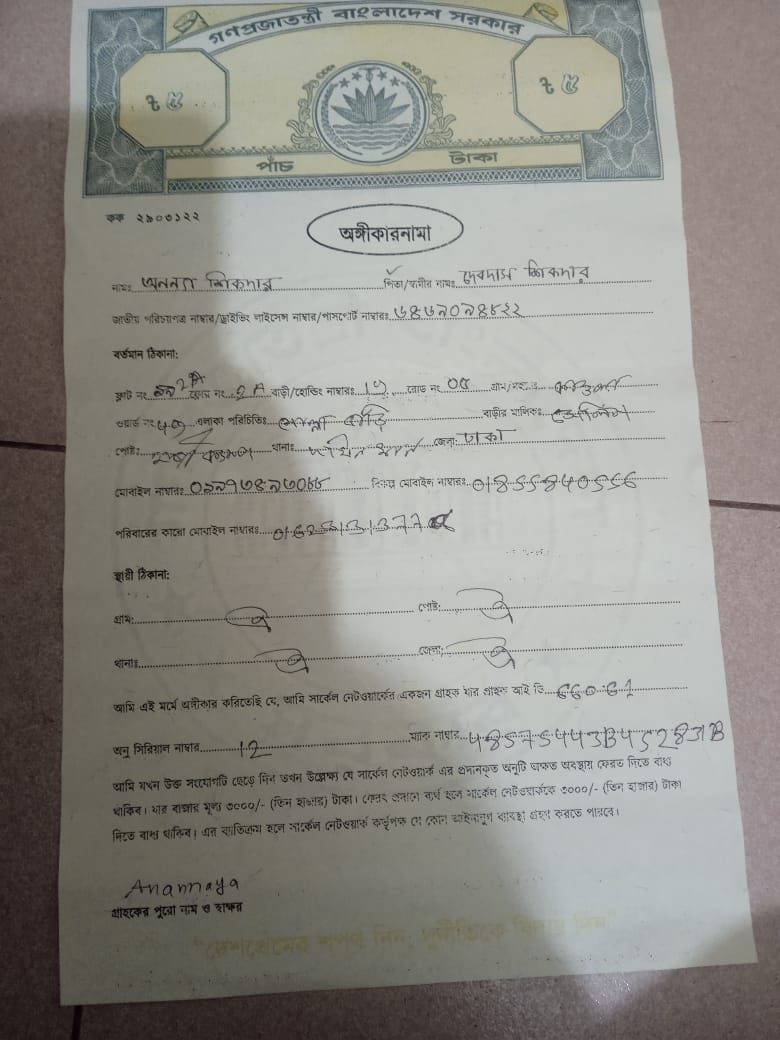 গণপ্রজাতন্ত্রী বাংলাদেশ সরকার
৳ ৫ ৳ ৫
পাঁচ টাকা
কক ২৯০৩১২২
অঙ্গীকারনামা
নামঃ অনন্যা শিকদার পিতা/স্বামীর নামঃ দেবদাস শিকদার
জাতীয় পরিচয়পত্র নাম্বার/ড্রাইভিং লাইসেন্স নাম্বার/পাসপোর্ট নাম্বারঃ
বর্তমান ঠিকানা:
ফ্ল্যাট নং ফ্লোর নং 2A বাড়ী/হোল্ডিং নাম্বারঃ রোড নং ০৫ গ্রাম/মহল্লাঃ
ওয়ার্ড নং এলাকা পরিচিতিঃ মোল্লা বাড়ি বাড়ীর মালিকঃ
পোষ্টঃ থানাঃ জেলাঃ ঢাকা
মোবাইল নাম্বারঃ বিকল্প মোবাইল নাম্বারঃ 01855840556
পরিবারের কারো মোবাইল নাম্বারঃ
স্থায়ী ঠিকানা:
গ্রাম: ঐ পোষ্ট: ঐ
থানাঃ ঐ জেলা: ঐ
আমি এই মর্মে অঙ্গীকার করিতেছি যে, আমি সার্কেল নেটওয়ার্কের একজন গ্রাহক যার গ্রাহক আই ডি
অনু সিরিয়াল নাম্বার 12 ম্যাক নাম্বার
আমি যখন উক্ত সংযোগটি ছেড়ে দিব তখন উল্লেখ্য যে সার্কেল নেটওয়ার্ক এর প্রদানকৃত অনুটি অক্ষত অবস্থায় ফেরত দিতে বাধ্য
থাকিব। যার বাজার মূল্য ৩০০০/- (তিন হাজার) টাকা। ফেরৎ প্রদানে ব্যর্থ হলে সার্কেল নেটওয়ার্ককে ৩০০০/- (তিন হাজার) টাকা
দিতে বাধ্য থাকিব। এর ব্যতিক্রম হলে সার্কেল নেটওয়ার্ক কর্তৃপক্ষ যে কোন আইনানুগ ব্যবস্থা গ্রহণ করতে পারবে।
Anannaya
গ্রাহকের পুরো নাম ও স্বাক্ষর
"দেশপ্রেমের শপথ নিন, দুর্নীতিকে বিদায় দিন"